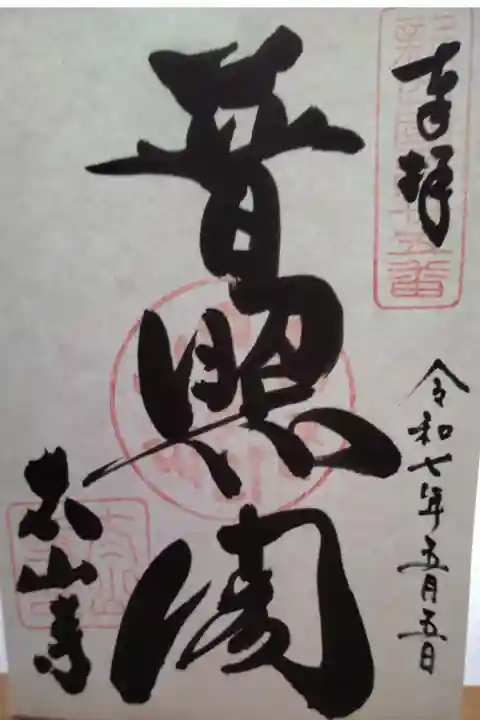 奉拝
令和七年五月五日
普照閣
太山寺